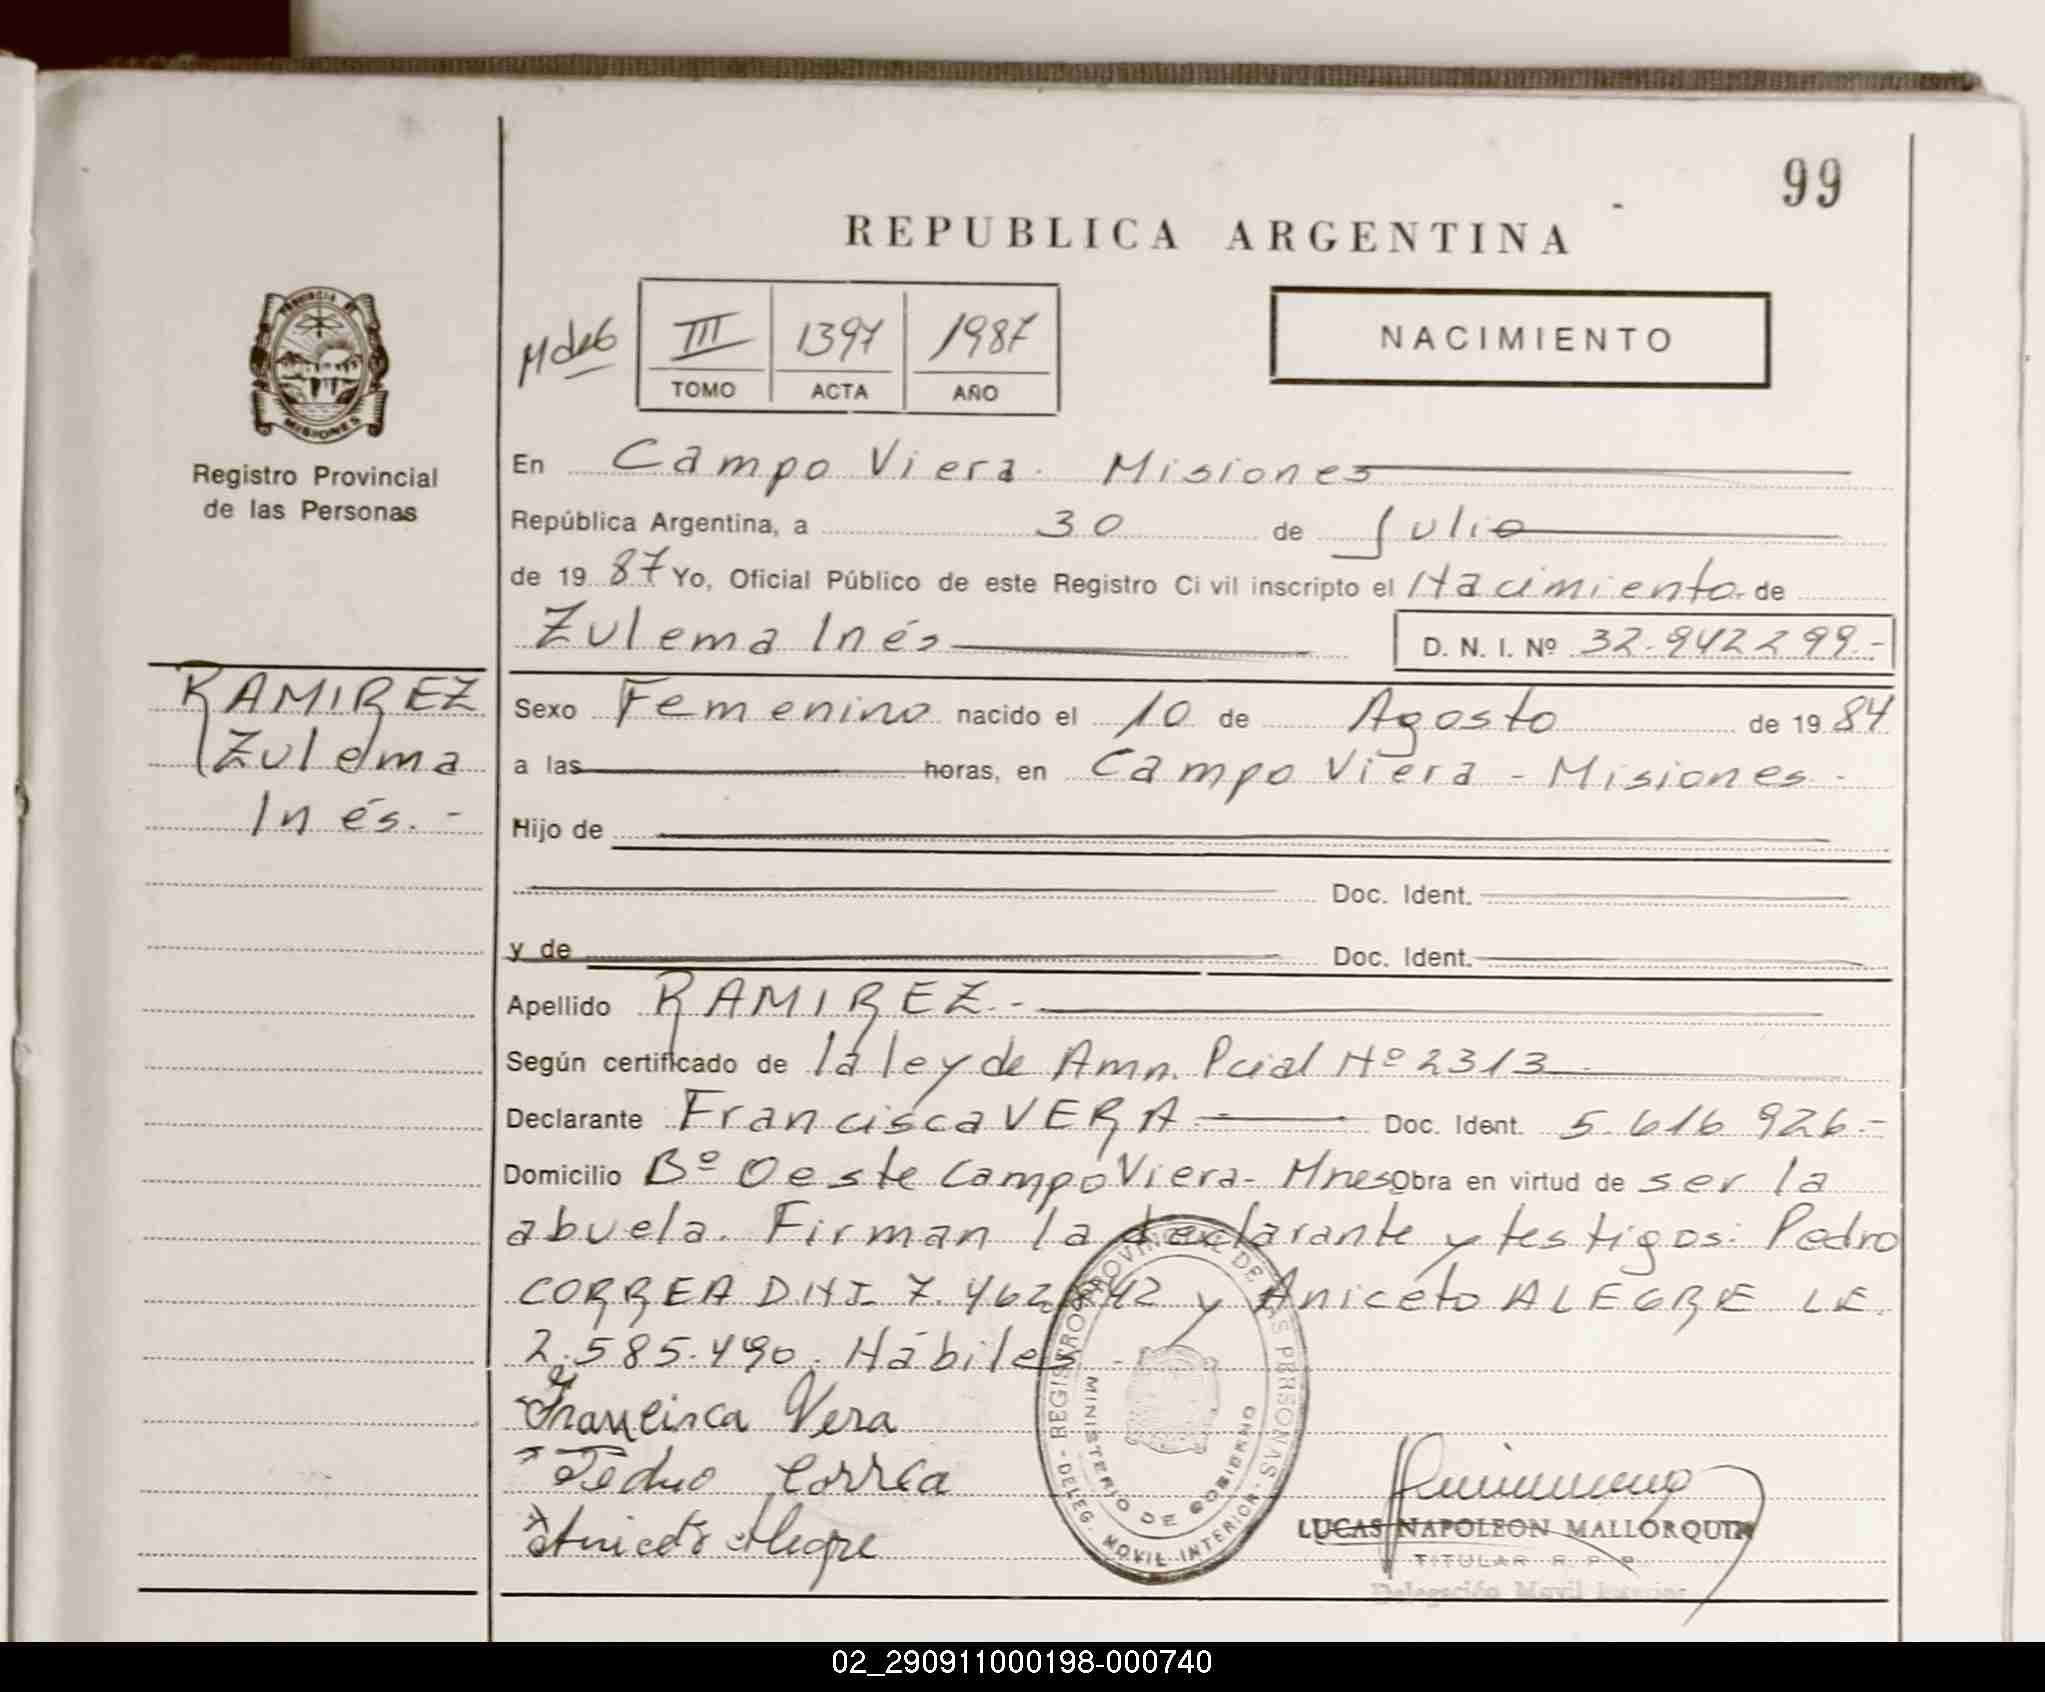 99
REPUBLICA ARGENTINA
PROVINCIA DE
MISIONES
Registro Provincial
de las Personas
III 1397 1987
TOMO ACTA AÑO
NACIMIENTO
En Campo Viera. Misiones
República Argentina, a 30 de Julio
de 19 87 Yo, Oficial Público de este Registro Ci vil inscripto el Nacimiento. de
Zulema Inés D. N. I. Nº 32.942299.-
RAMIREZ
Zulema
Inés.-
Sexo Femenino nacido el 10 de Agosto de 19 84
a las horas, en Campo Viera - Misiones -
Hijo de
Doc. Ident.
y de Doc. Ident.
Apellido RAMIREZ.-
Según certificado de la ley de Amn. Pcial Nº 2313
Declarante Francisca VERA Doc. Ident. 5.616 926.-
Domicilio Bº Oeste Campo Viera- Mnes Obra en virtud de ser la
abuela. Firman la declarante y testigos: Pedro
CORREA D.N.I. 7.462 y Aniceto ALEGRE LE.
2.585.490. Hábiles.-
Francisca Vera
Pedro Correa
Aniceto Alegre
REGISTRO PROVINCIAL DE LAS PERSONAS
DELEG. MOVIL INTERIOR
MINISTERIO DE GOBIERNO
LUCAS NAPOLEON MALLORQUIN
TITULAR R. P. P.
Delegación Movil Interior
02_290911000198-000740